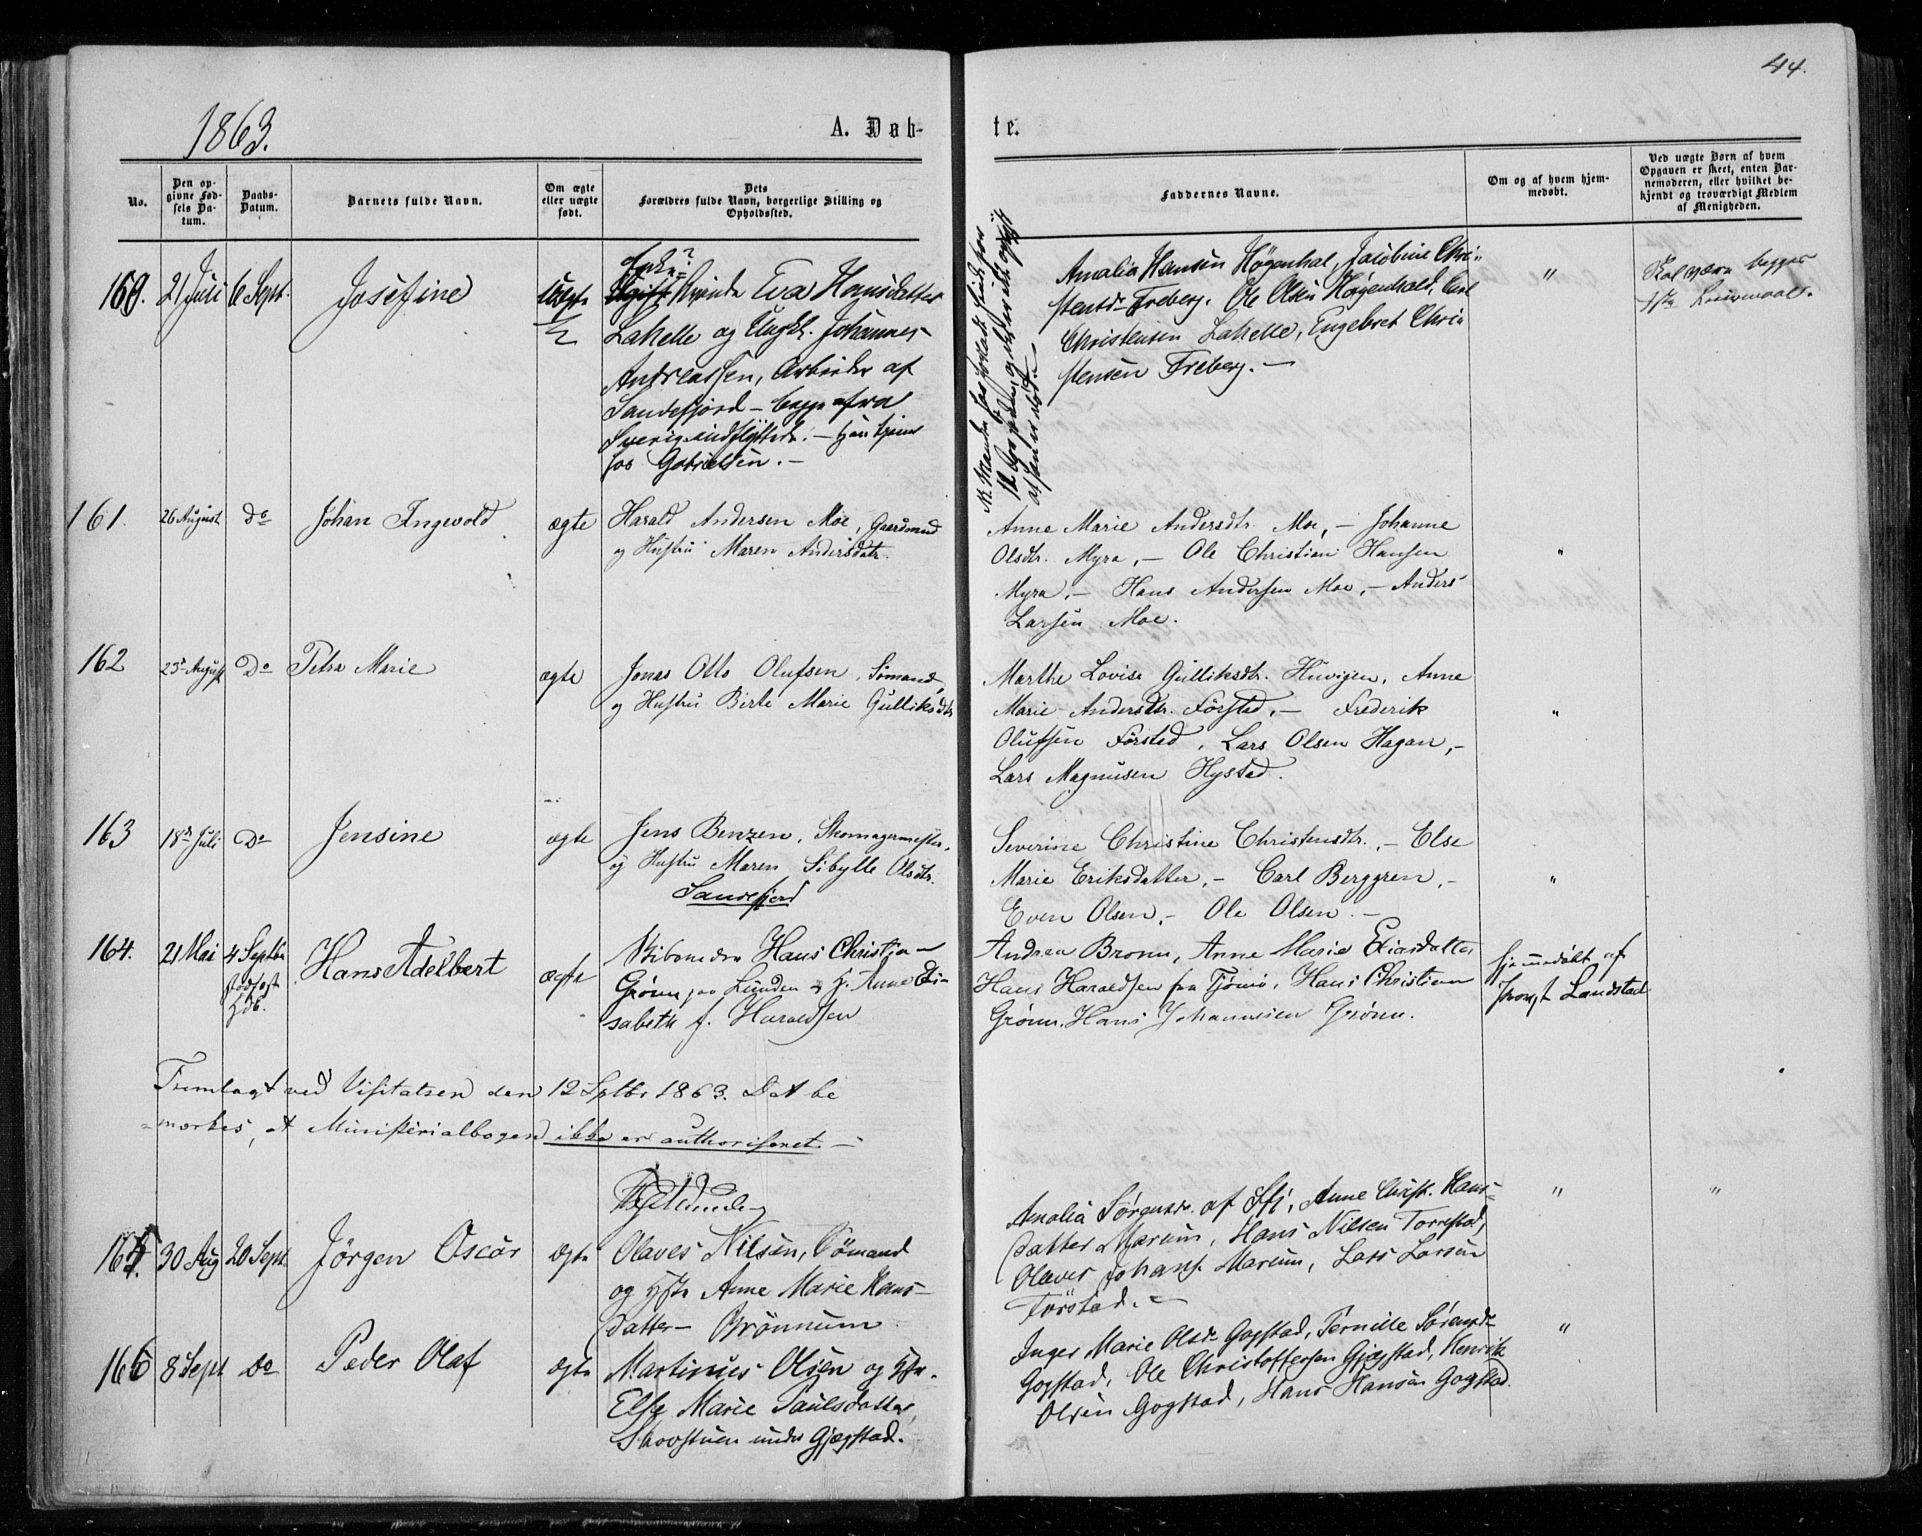 44.
1863.
A. Døb-
te.
No.
Den op-
givne Fød-
sels Da-
tum.
Daabs-
Datum.
Barnets fulde Navn.
Om ægte
eller uægte
født.
Dets
Forældres fulde Navn, borgerlige Stilling og
Opholdssted.
Faddernes Navne.
Om og af hvem hjem-
medøbt.
Ved uægte Børn af hvem
Opgaven er skeet, enten Bar-
nemoderen, eller hvilket be-
kjendt og troværdigt Medlem
af Menigheden.
160. 21 Juli 6 Sept. Josefine uægte
Enke?
Ugift Kvinde Eva Hansdatter
Lahelle og Ungk. Johannes
Andreassen, Arbeider af
Sandefjord - begge fra
Sverige indflyttede. - Han tjener
hos Gabrielsen. -
Amalia Hansen Høgenhal, Jacobine Chri-
stensdr Freberg. Ole Olsen Høgenhald, Carl
Christensen Lahelle, Engebret Chri-
stensen Freberg. -
"
Skal være begges
1ste Leiermaal.
161. 26 August Do Johan Ingvold ægte
Harald Andersen Moe, Gaardmand
og Hustru Maren Andersdatr.
Anne Marie Andersdtr. Moe, - Johanne
Olsdtr. Myra, - Ole Christian Hansen
Myra, - Hans Andersen Moe, - Anders
Larsen Moe.
"
162 23de August Do Petra Marie ægte
Jonas Otto Olufsen, Sømand,
og Hustru Birte Marie Gulliksdtr
Marthe Lovise Gulliksdtr. Huvigen, Anne
Marie Andersdtr. Førsted, - Frederik
Olufsen Førsted, Lars Olsen Hagan, -
Lars Magnusen Hystad.
"
163 18de Juli Do Jensine ægte
Jens Benzen, Skomagermester,
og Hustru Maren Sibylle Olsdtr.
Sandefjord
Severine Christine Christensdtr. - Else
Marie Eriksdatter, - Carl Berggren, -
Even Olsen, - Ole Olsen. -
"
164. 21 Mai 4 Septbr
stadfæst
Hans Adelbert ægte
Skibsreder Hans Christian
Grønn paa Lunden og H. Anne Eli-
sabeth f. Haraldsen
Andrea Bronn, Anne Marie Eliasdatter
Hans Haraldsen fra Tjømø, Hans Christian
Grønn, Hans Johannesen Grønn.
hjemmedøbt af
Provst Landstad
Fremlagt ved Visitatsen den 12 Septbr 1863. Det be
=mærkes, at Ministerialbogen ikke er authoriseret. -
165. 30 Aug 20 Sept. Jørgen Oscar ægte
Olaves Nilsen, Sømand
og Hstr Anne Marie Hans-
datter - Brønnum
Amalia Sørensdr. af Sfj, Anne Christ. Hans-
datter Marum, Hans Nilsen Torrestad,
Olaves Johans. Marum, Lars Larsen
Torstad. -
"
"
166 8 Sept Do Peder Olaf ægte
Martinus Olsen og Hstr.
Else Marie Paulsdatter,
Skovstuen under Gjøgstad.
Inger Marie Olsdr Gogstad, Pernille Sørensdr
Gogstad, Ole Christoffersen Gjøgstad, Henrik
Olsen Gogstad, Hans Hansen Gogstad.
"